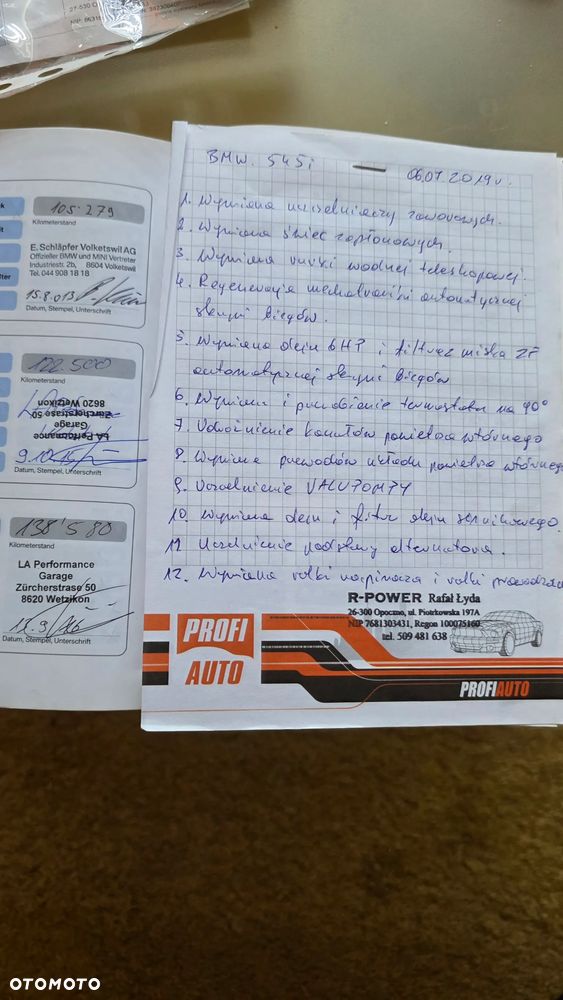 27-530 O
NIP: 8631
105.279
Kilometerstand
E. Schläpfer Volketswil AG
Offizieller BMW und MINI Vertreter
Industriestr. 2b, 8604 Volketswil
Tel. 044 908 18 18
15.8.013
Datum, Stempel, Unterschrift
122.500
Kilometerstand
LA Performance
Garage
Zürcherstrasse 50
8620 Wetzikon
Datum, Stempel, Unterschrift
138'580
Kilometerstand
LA Performance
Garage
Zürcherstrasse 50
8620 Wetzikon
Datum, Stempel, Unterschrift
BMW. 545i 06.07.2019r.
1. Wymiana uszczelniaczy zaworowych.
2. Wymiana świec zapłonowych.
3. Wymiana rurki wodnej teleskopowej.
4. Regeneracja mechatroniki automatycznej
skrzyni biegów.
5. Wymiana oleju 6HP i filtra miska ZF
automatycznej skrzyni biegów
6. Wymiana i termostatu na 90°
7. Udrożnienie kanałów powietrza wtórnego
8. Wymiana przewodów układu powietrza wtórnego
9. Uszczelnienie
10. Wymiana oleju i filtr oleju silnikowego.
11 Uszczelnienie podstawy alternatora.
12. Wymiana rolki napinacza i rolki
R-POWER Rafał Łyda
26-300 Opoczno, ul. Piotrkowska 197A
NIP 7681303431, Regon 100075160
tel. 509 481 638
PROFI
AUTO
PROFIAUTO
OTOMOTO